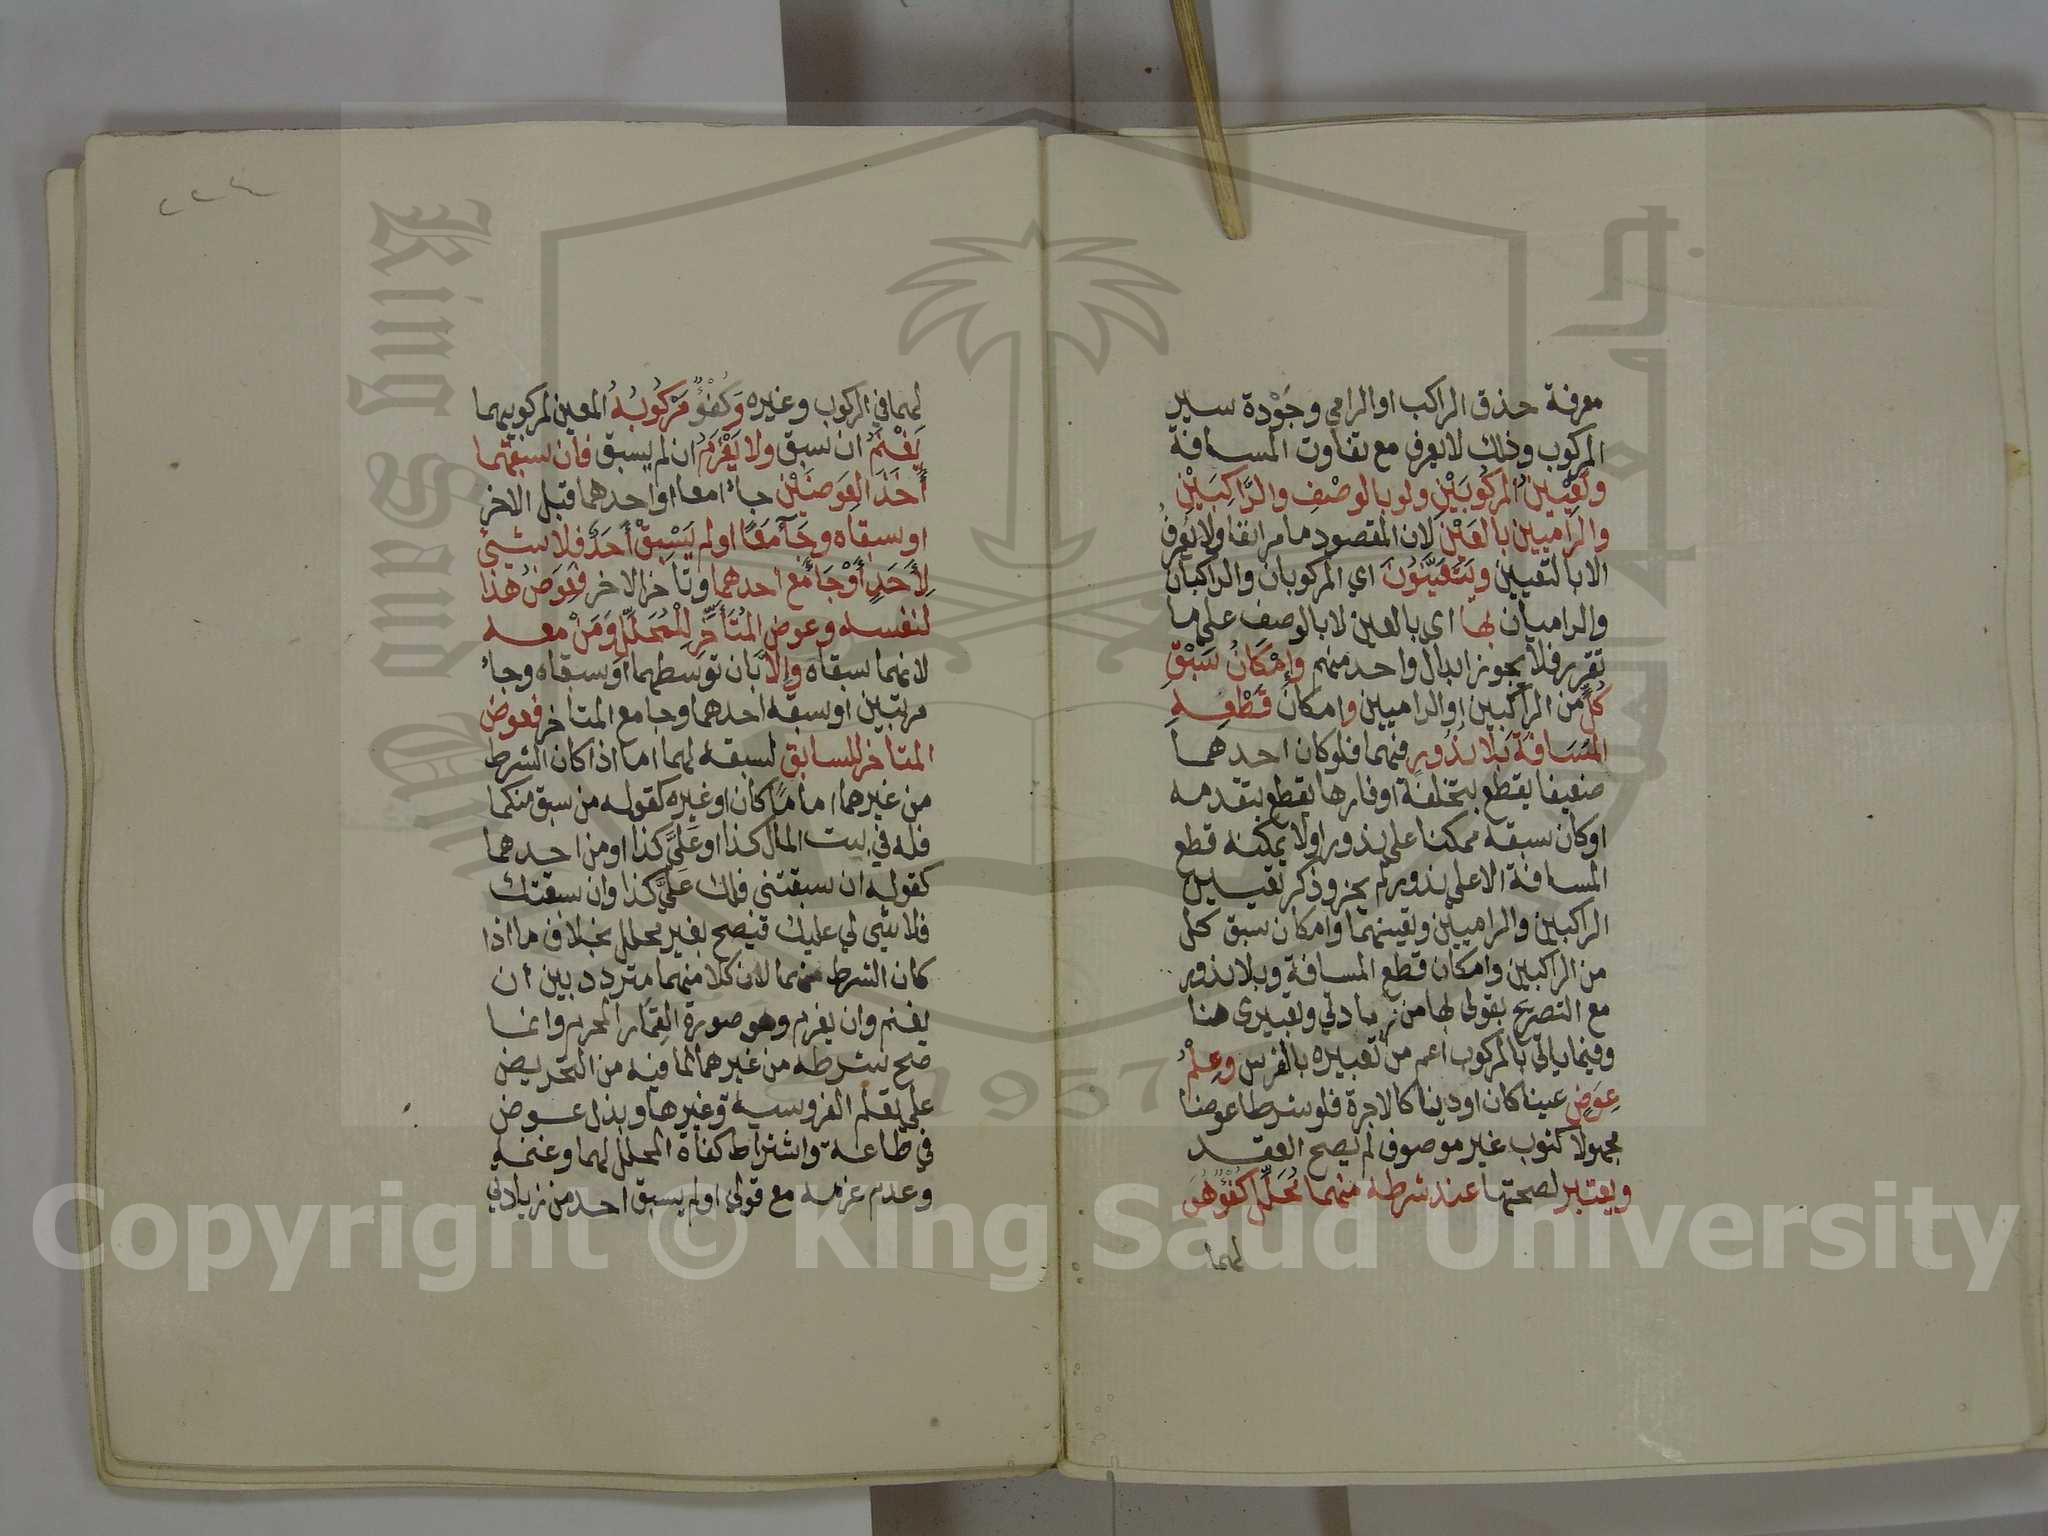 معرفة حذق الراكب او الرامي وجَوْدة سير
المركوب وذلك لا يعرف مع تفاوت المسافة
وتَعْيِينُ المركُوبَيْنِ ولو بالوصْفِ والرَّاكِبَيْنِ
والرامِيينِ بالعَيْنِ لان المقصود ما مر انفا ولا يعرف
الا بالتعيين ويَتَعَيَّنُونَ اي المركوبان والراكبان
والراميان بها اي بالعين لا بالوصف على ما
تقرر فلا يجوز ابدال واحد منهم وإمْكَانُ سَبْقِ
كُلٍّ من الراكبين او الراميين وامكان قَطْعِهِ
المسَافَةَ بَلا نُدُورٍ فيهما فلو كان احدهما
ضعيفا يقطع بتخلفه او فارها يقطع بتقدمه
او كان سبقه ممكنا على ندور او لا يمكنه قطع
المسافة الا على ندور لم يجز وذكر تعيين
الراكبين والراميين وتعينهما وامكان سبق كل
من الراكبين وامكان قطع المسافة وبلا ندور
مع التصريح بقولي بها من زيادتي وتعبيري هنا
وفيما ياتي بالمركوب اعم من تعبيره بالفرس وعِلْمُ
عِوَضٍ عينا كان او دينا كالاجرة فلو شرطا عوضا
مجهولا كثوب غير موصوف لم يصح العقد
ويعتبر لصحتها عند شرطه منهما مُحَلِّلٌ كُفْؤٌ هُوَ
لهما
٢٢٤
لهما في الركوب وغيره وَكُفْؤٌ مَرْكُوبُهُ المعين لمركوبيهما
يَغْنَمُ ان سبق ولا يَغْرَمُ ان لم يسبق فان سبقهما
أَخَذَ العِوَضَيْنِ جاءَا معا او احدهما قبل الاخر
او سبقاه وجَآءَ مَعًا او لم يَسْبِقْ أَحَدٌ فلا شيئ
لِأَحَدٍ أَوْ جَاءَ مَعَ احدهما وتأخر الاخر فعِوَضُ هذا
لنفسه وعوض المُتَأَخِّرِ لِلْمُحَلِّلِ وَمَنْ معه
لانهما سبقاه وإلا بان توسطهما او سبقاه وجاءَا
مرتبين او سبقه احدهما وجا مع المتاخر فعوض
المتاخر للسابق لسبقه لهما اما اذا كان الشرط
من غيرهما اماما كان او غيره كقوله من سبق منكما
فله في بيت المال كذا او عَلَيَّ كذا او من احدهما
كقوله ان سبقتني فلك عَلَيَّ كذا وان سبقتك
فلا شيئ لي عليك فيصح بغير محلل بخلاف ما اذا
كان الشرط منهما لان كلا منهما متردد بين أن
يغنم وان يغرم وهو صورة القِمَار المحرم وانما
صح شرطه من غيرهما لما فيه من التحريض
على تعلم الفروسية وغيرها وبذل عوض
في طاعة واشتراط كفاة المحلل لهما وغنمه
وعدم غرمه مع قولي او لم يسبق احد من زيادتي
Copyright © King Saud University
King Saud University
جامعة الملك سعود
1957